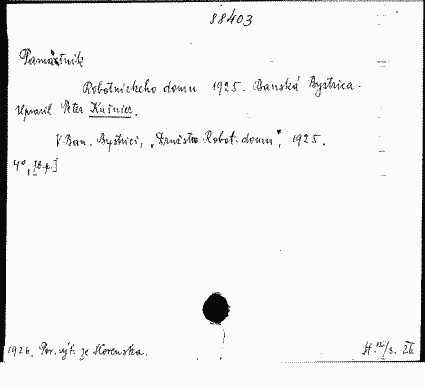 88403
Pamätník
Robotníckeho domu 1925. Banská Bystrica.
Upravil Peter Kušniec.
V Ban. Bystrici, „Družstvo Robot. domu", 1925.
4°, [b.p.]
1926. Pov. výt. ze Slovenska. H. 12/3. 26